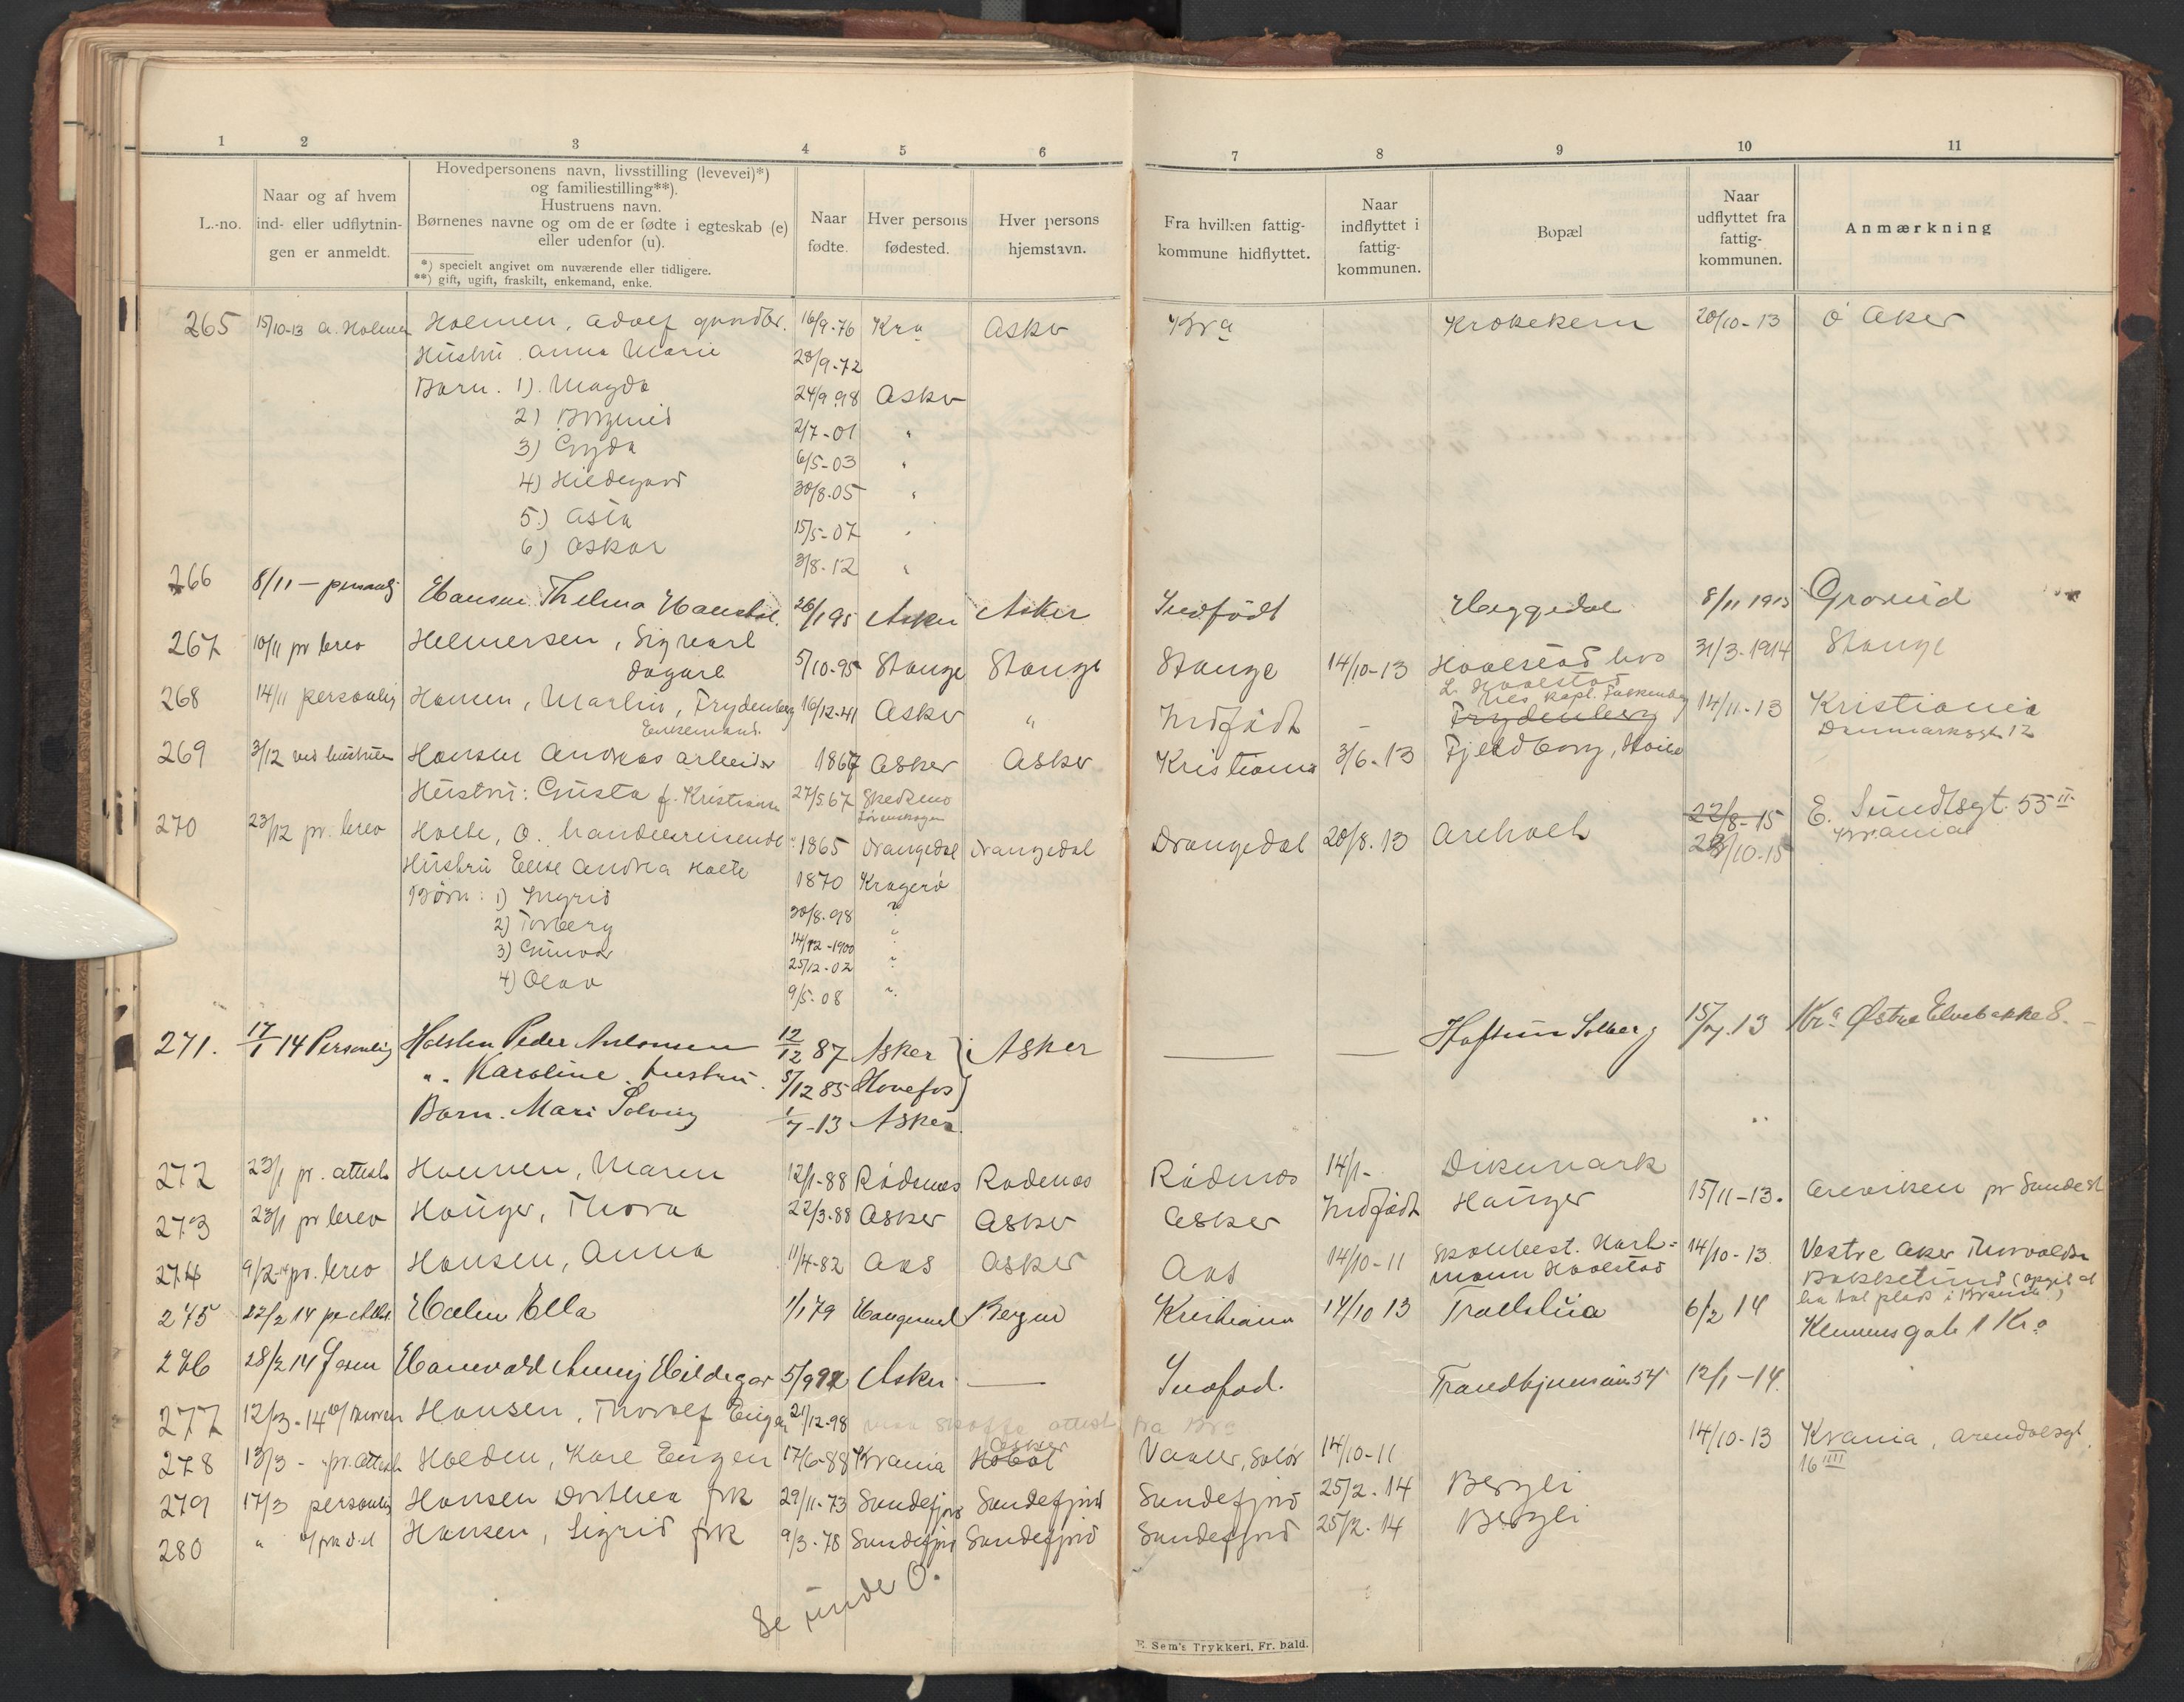 1 2 3 4 5 6 7 8 9 10 11
L.-no.
Naar og af hvem
ind- eller udflytnin-
gen er anmeldt.
Hovedpersonens navn, livsstilling (levevei)*)
og familiestilling**).
Hustruens navn.
Børnenes navne og om de er fødte i egteskab (e)
eller udenfor (u).
*) specielt angivet om nuværende eller tidligere.
**) gift, ugift, fraskilt, enkemand, enke.
Naar
fødte.
Hver persons
fødested.
Hver persons
hjemstavn.
Fra hvilken fattig-
kommune hidflyttet.
Naar
indflyttet i
fattig-
kommunen.
Bopæl
Naar
udflyttet fra
fattig-
kommunen.
Anmærkning
265 15/10-13 A. Holmen Holmen, Adolf 16/9-76 Kra Asker Kra Krokekern 20/10-13 Ø Aker
Hustru. Anna Marie 28/9-72
Barn. 1). Magda 24/9 98 Asker
2) Borghild 2/7-01 "
3) Gyda 6/5-03 "
4) Hildegard 30/8-05 "
5) Asta 15/5-07 "
6) Oskar 3/8-12 "
266 8/11 - personlig Hansen Thelma 26/1 95 Asker Asker Indfødt Heggedal 8/11 1913 Grorud
267 10/11 pr brev Helmersen, Sigvart
Dagarb. 5/10-95 Stange Stange Stange 14/10-13 Hvalstad hos 31/3-1914 Stange
L. Hvalstad
268 14/11 personlig Hansen, Martin, Frydenberg 16/12-41 Asker " Indfødt - Frydenberg 14/11-13 Kristiania
Enkemand. Danmarksgt 12
269 3/12 ved hustruen Hansen Andreas arbeider 1867 Asker Asker Kristiania 3/6-13 Fjeldborg,
Hustru: Gusta f. Kristians 27/5 67 Skedsmo
Lørenskogen
270 23/12 pr. brev Holte, O. handelsreisende 1865 Drangedal Drangedal Drangedal 20/8.13 Areholt 22/8-15 E. Sundtsgt. 55 II
Krania
28/10-15
Hustru Elise Andrea Holte 1870 Kragerø
Børn: 1) Ingrid 30/8-98 "
2) Torberg 14/12-1900 "
3) Gunvor 25/12-02 "
4) Olav 9/5-08 "
271. 17/1 14 Personlig Holsten Peder Antonsen 12/12 87 Asker } Asker — — Solberg 15/7.13 Kra Østre Elvebakke 8.
" Karoline, hustru. 5/12 85 Hønefos }
Barn. Mari Solveig 1/7-13 Asker.
272 23/1 pr. attest Holmen, Maren 12/1-88 Rødenes Rødenes Rødenes 14/1- Dikemark
273 23/1 pr brev Hauger, Thora 22/3-88 Asker Asker Asker Indfødt Hauger 15/11-13. pr Sandest
274 9/2-14 pr. brev Hansen, Anna 11/4-82 Aas Asker Aas 14/10-11 Skolebest. Karl- 14/10-13 Vestre Aker Thorvald
mann Hvalstad
275 22/2 14 pr attst. Holm Ella 1/1 79 Haugesund Bergen Kristiania 14/10 13 Trollstua 6/2 14 Klemensgate 1 Kra
276 28/2 14 Hanevold Anny Hildegar 5/9 92 Asker — Indfød. 12/1-14.
277 12/3-14 Hansen, Thorolf Eugen 21/12-98 maa skaffe attest fra Kra
278 13/3 - pr. attest Holden, Kare Eugen 17/6-88 Krania Hobøl Asker Vaaler, Solør 14/10-11 14/10-13 Krania, Arendalsgt.
16 IIII
279 17/3 personlig Hansen Dorthea frk 29/11-73 Sandefjord Sandefjord Sandefjord 25/2-14 Bergli
280 " Hansen, Sigrid frk 9/3-78 Sandefjord Sandefjord Sandefjord 25/2-14 Bergli
Se under O.
E. Sem's Trykkeri, Fr. hald.